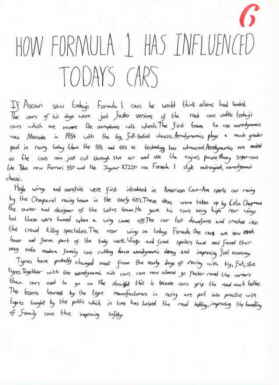 6
HOW FORMULA 1 HAS INFLUENCED
TODAYS CARS
If Ascari saw today's Formula 1 cars he would think aliens had landed.
The cars of his days were just faster versions of the road cars unlike today's
cars which are more like aeroplanes with wheels. The first team to use aerodynamics
was Mercedes in 1954 with the big full-bodied chassis. Aerodynamics plays a much greater
part in racing today than the 50s and 60s as technology has advanced. Aerodynamics are needed
so the cars can just cut through the air and use the engines power. Many supercars
like the new Ferrari 550 and the Jaguar XJ220 use Formula 1 style undertrays, aerodynamic
chassis.
Huge wings and aerofoils were first introduced in American Can-Am sports car racing
by the Chaparral racing team in the early 60s. These ideas were taken up by Colin Chapman
the owner and designer of the Lotus team. He gave his cars very high rear wings
but these were banned when a wing came off the car at and crashed into
the crowd killing spectators. The rear wings on todays Formula One cars are now much
lower and form part of the body work. Wings and front spoilers have and found their
way onto modern family cars cutting down aerodynamic drag and improving fuel economy.
Tyres have probably changed most from the early days of racing with big, fat, slick
tyres. Together with the aerodynamic aids cars can now almost go faster round the corners
than cars used to go on the straight this is because cars grip the road much better.
The lessons learned by the tyre manufacturers in racing are put into practice with
tyres bought by the public which in turn has helped the road holding, improving the handling
of family cars thus improving safety.